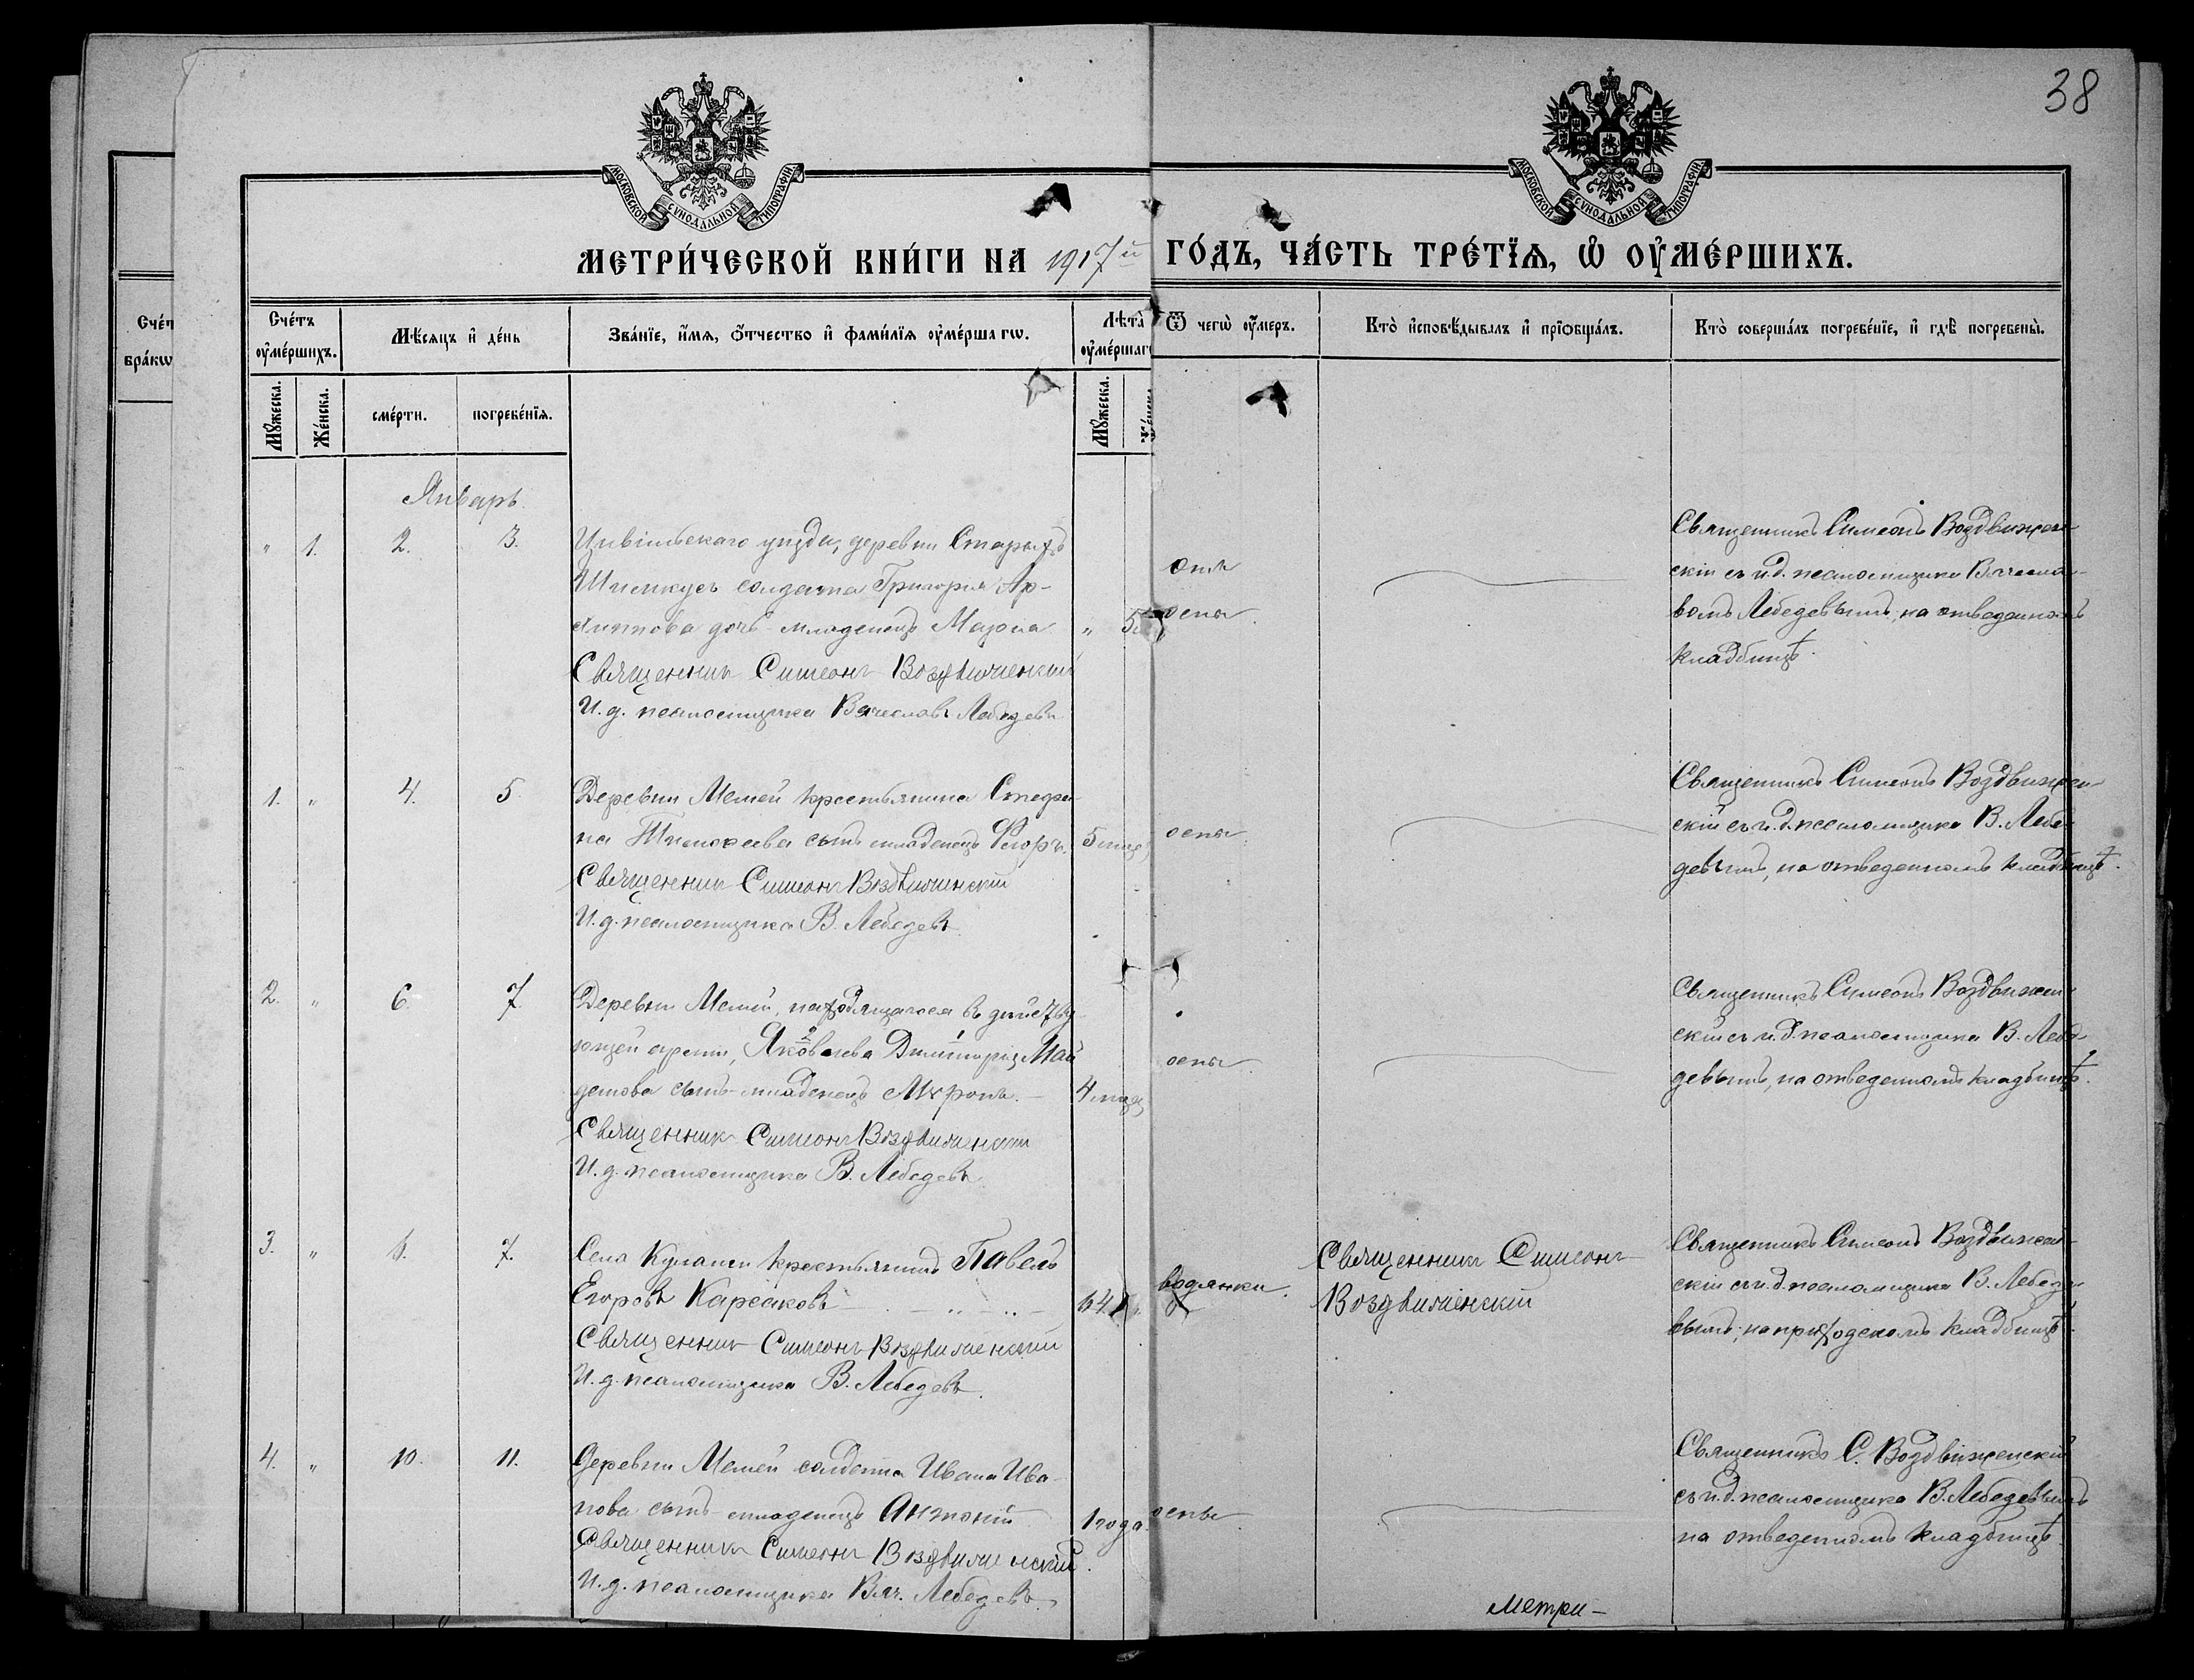 38
МОСКОВСКОЙ СѴНОДАЛЬНОЙ ТИПОГРАФІИ
МОСКОВСКОЙ СѴНОДАЛЬНОЙ ТИПОГРАФІИ
МЕТРИ́ЧЕСКОЙ КНИ́ГИ НА 1917й ГО́ДЪ, ЧА́СТЬ ТРЕ́ТЇѦ, Ѡ҆ ОУ҆МЕ́РШИХЪ.
Сче́т
бра́кѡ
Сче́тъ оу҆ме́ршихъ.
Мѣ́сяцъ и҆ де́нь
Зва́нїе, и҆́мѧ, ѻ҆́тчество и҆ фами́лїѧ оу҆ме́ршагѡ.
Лѣта̀ оу҆ме́ршаг
Ѿ чегѡ̀ оу҆́меръ.
Кто̀ и҆сповѣ́дывалъ и҆ прїѡбща́лъ.
Кто̀ соверша́лъ погребе́нїе, и҆ гдѣ̀ погребены̀.
Мꙋ́жеска.
Же́нска.
сме́рти.
погребе́нїѧ.
Мꙋ́жеска.
Январь.
" 1. 2. 3.
Цивильскаго уѣзда, деревни Старыхъ
солдата Григорія Ар-
хиппова дочь младенецъ Марѳа
Священникъ Симеонъ Воздвиженскій
И. д. псаломщика Вячеславъ Лебедевъ
" 5
отъ
оспы
Священникъ Симеонъ Воздвижен-
скій съ и. д. псаломщика Вячесла-
вомъ Лебедевымъ, на отведенномъ
кладбищѣ.
1. " 4. 5.
Деревни Мемей крестьянина Стефа-
на Тимоѳеева сынъ младенецъ Флоръ.
Священникъ Симеонъ Воздвиженскій
И. д. псаломщика В. Лебедевъ
5 мѣс
оспы
Священникъ Симеонъ Воздвижен-
скій съ и. д. псаломщика В. Лебе-
девымъ, на отведенномъ кладбищѣ.
2. " 6. 7.
Деревни Мемей, находящагося въ дѣйству-
ющей арміи, Яковлева Димитрія
сынъ младенецъ Миронъ.
Священникъ Симеонъ Воздвиженскій
И. д. псаломщика В. Лебедевъ
4 мѣс
оспы
Священникъ Симеонъ Воздвижен-
скій съ и. д. псаломщика В. Лебе-
девымъ, на отведенномъ кладбищѣ.
3. " 7.
Села крестьянинъ Павелъ
Егоровъ Карсаковъ
Священникъ Симеонъ Воздвиженскій
И. д. псаломщика В. Лебедевъ.
64
водянки.
Священникъ Симеонъ
Воздвиженскій
Священникъ Симеонъ Воздвижен-
скій съ и. д. псаломщика В. Лебеде-
вымъ, на приходскомъ кладбищѣ.
4. " 10. 11.
Деревни Мемей солдата Ивана Ива-
нова сынъ младенецъ Антоній
Священникъ Симеонъ Воздвиженскій.
И. д. псаломщика Вяч. Лебедевъ
1 года
оспы
Священникъ С. Воздвиженскій
съ и. д. псаломщика В. Лебедевымъ
на отведенномъ кладбищѣ.
Метри-